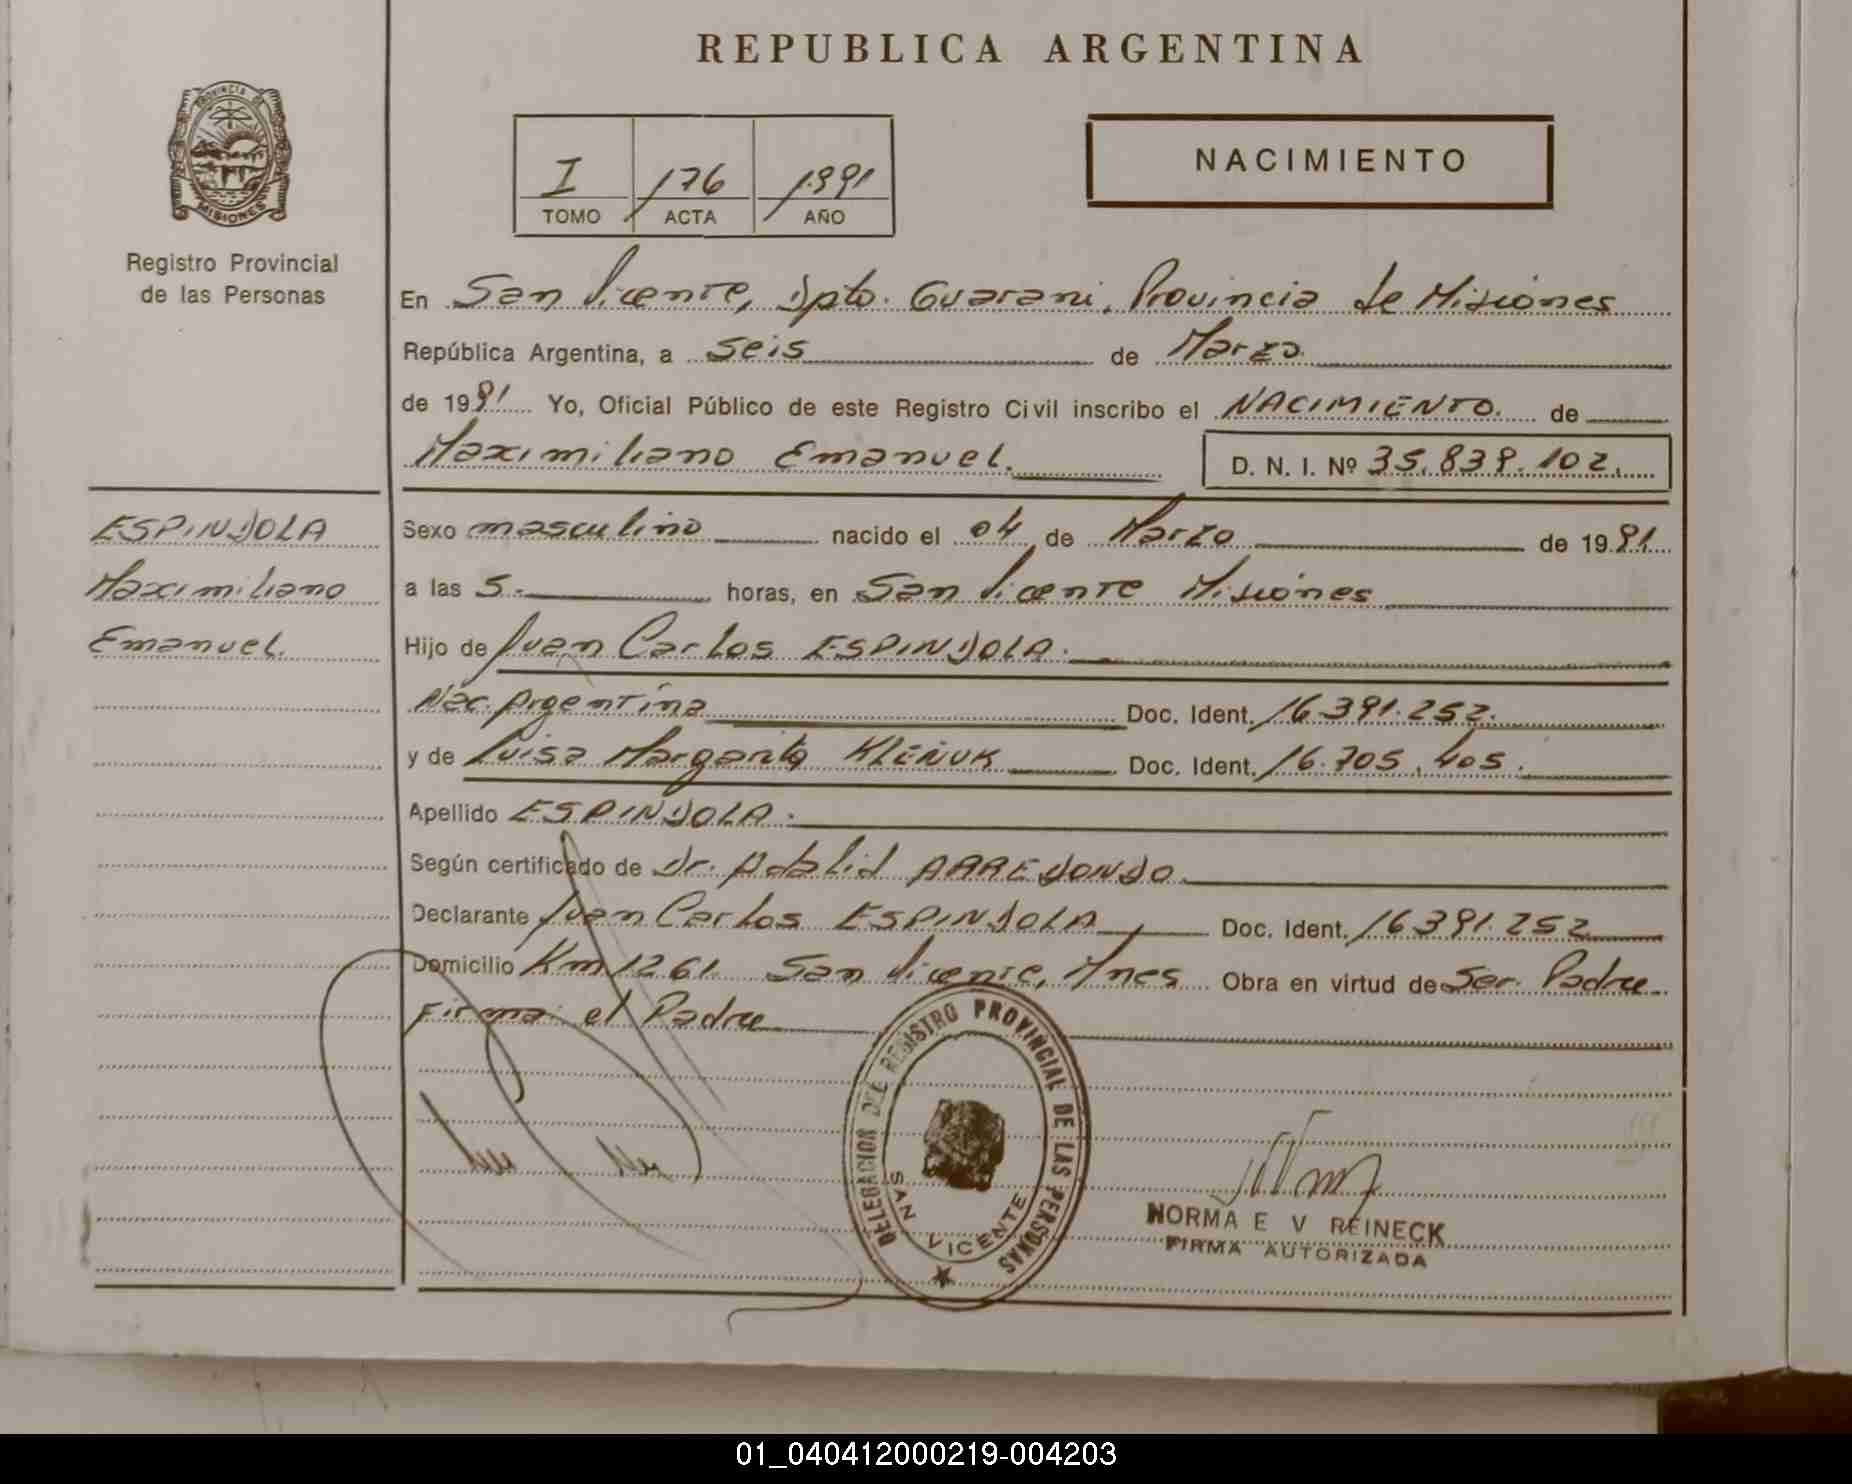 REPUBLICA ARGENTINA
PROVINCIA DE
MISIONES
Registro Provincial
de las Personas
I 176 1991
TOMO ACTA AÑO
NACIMIENTO
En San Vicente, Dpto. Guarani, Provincia de Misiones
República Argentina, a seis de Marzo
de 1991 Yo, Oficial Público de este Registro Civil inscribo el NACIMIENTO. de
Maximiliano Emanuel. D. N. I. Nº 35.839.102.
ESPINDOLA
Maximiliano
Emanuel.
Sexo masculino nacido el 04 de Marzo de 1991
a las 5. horas, en San Vicente Misiones
Hijo de Juan Carlos ESPINDOLA.
Nac. Argentina Doc. Ident. 16.391.252.
y de Luisa Margarita Doc. Ident. 16.705.405.
Apellido ESPINDOLA.
Según certificado de Dr. ARREDONDO.
Declarante Juan Carlos ESPINDOLA Doc. Ident. 16391.252
Domicilio Km 1261 San Vicente, Mnes Obra en virtud de Ser. Padre
Firma el Padre
DELEGACION DEL REGISTRO PROVINCIAL DE LAS PERSONAS
SAN VICENTE
NORMA E V REINECK
FIRMA AUTORIZADA
01_040412000219-004203